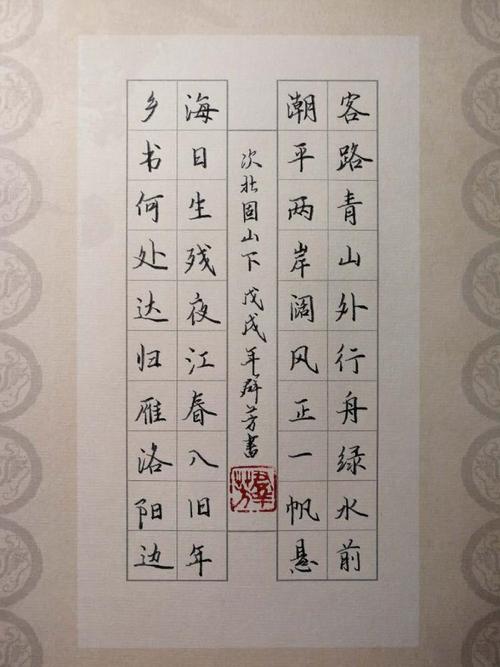 客路青山外行舟绿水前
潮平两岸阔风正一帆悬
次北固山下 戊戌年群芳书
海日生残夜江春入旧年
乡书何处达归雁洛阳边
羣芳